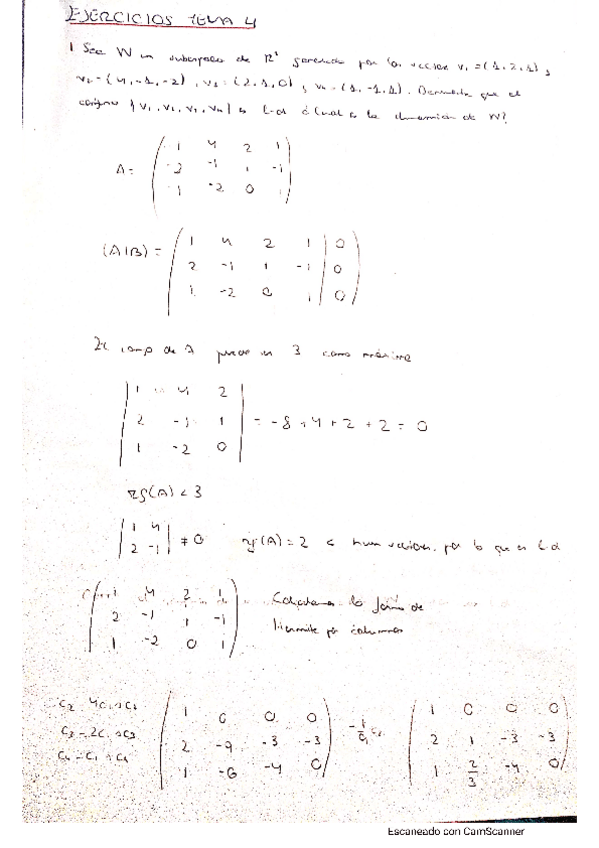 EJERCICIOS TEMA 4
1 Sea W un subespacio de R³ generado por los vectores v₁ = (1, 2, 1),
v₂ = (4, -1, -2), v₃ = (2, 1, 0), v₄ = (1, -1, 1). Demuestra que el
conjunto {v₁, v₂, v₃, v₄} es l.d ¿Cual es la dimension de W?
A = ( 1 4 2 1
2 -1 1 -1
1 -2 0 1 )
(A|B) = ( 1 4 2 1 | 0
2 -1 1 -1 | 0
1 -2 0 1 | 0 )
rango de A puede ser 3 como máximo
| 1 4 2 |
| 2 -1 1 | = -8 + 4 + 2 + 2 = 0
| 1 -2 0 |
rg(A) < 3
| 1 4 |
| 2 -1 | ≠ 0 rg(A) = 2 < num vectores, por lo que es l.d
( 1 4 2 1 Calculamos la forma de
2 -1 1 -1 Hermite por columnas
1 -2 0 1 )
C₂ - 4C₁ → C₂ ( 1 0 0 0 ( 1 0 0 0
C₃ - 2C₁ → C₃ 2 -9 -3 -3 -1/9 C₂ 2 1 -3 -3
C₄ - C₁ → C₄ 1 -6 -4 0 ) 1 2/3 -4 0 )
Escaneado con CamScanner